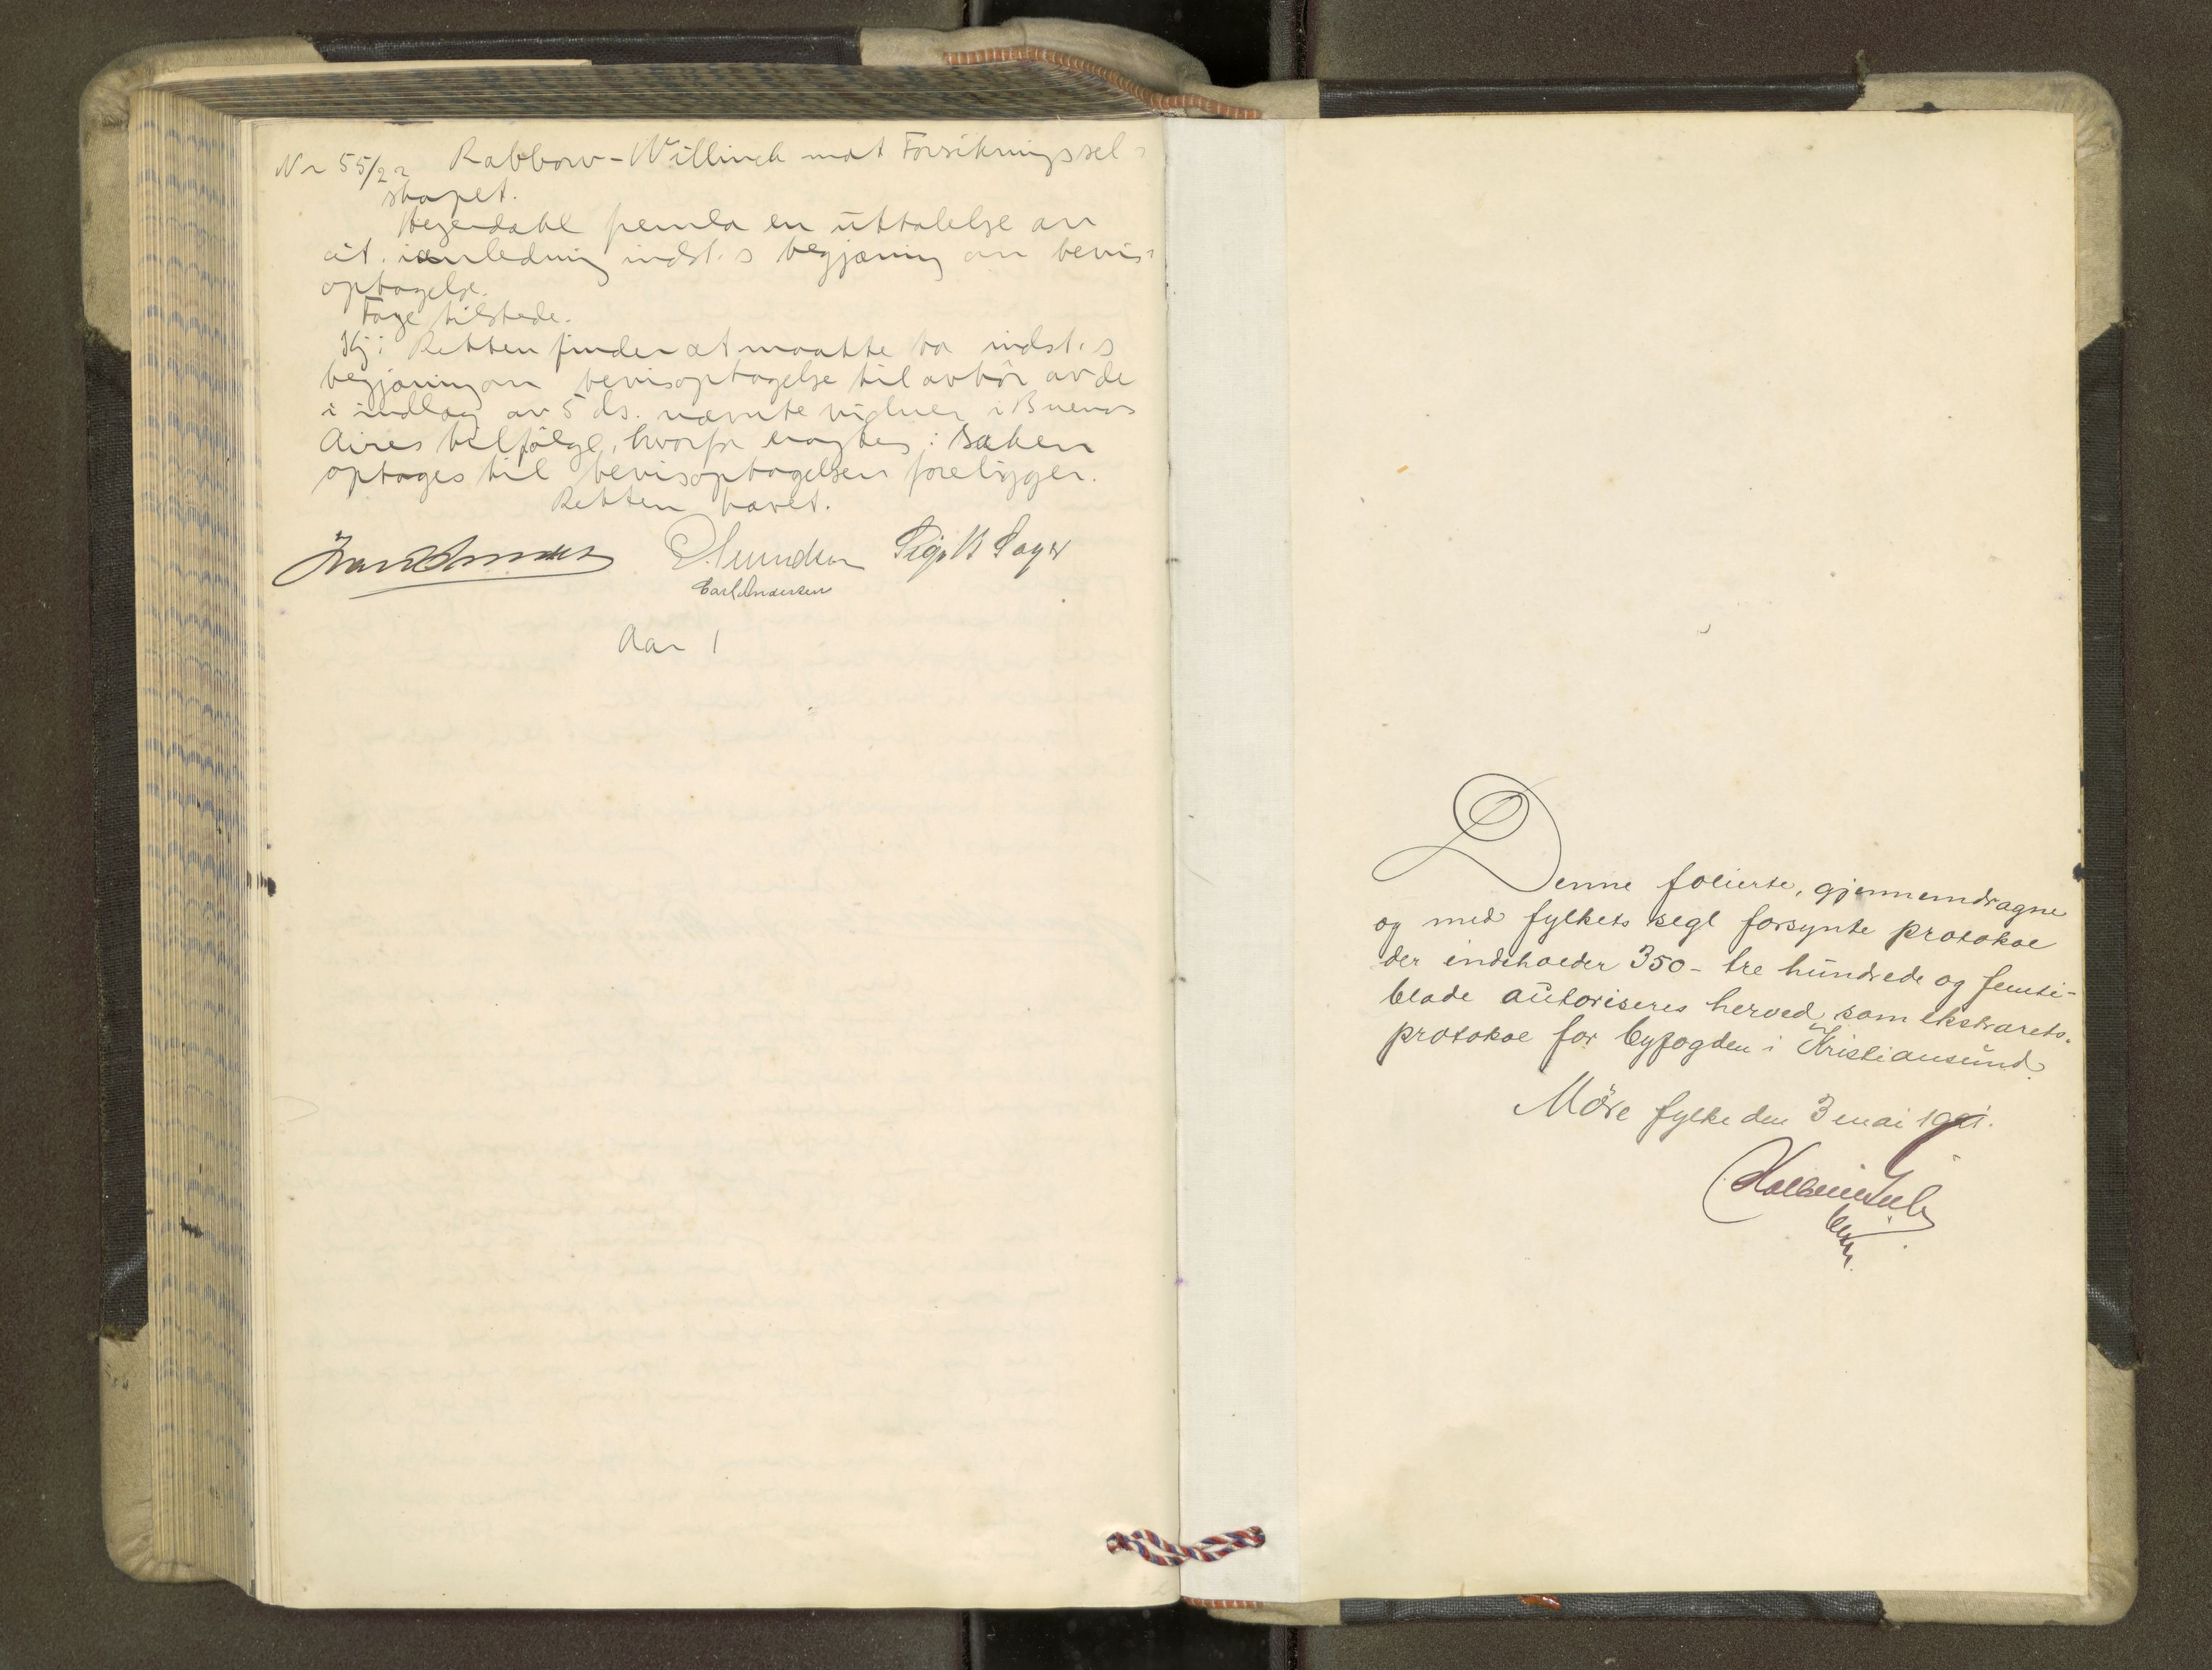 Nr 55/22 Rabbow-Willinck mot Forsikringssel-
skapet.
Hegerdahl fremla en uttalelse av
cit. i anledning indst.s begjæring om bevis-
optagelse.
Fage tilstede.
Kj: Retten finder at maatte ta indst.s
begjæring om bevisoptagelse til avhør av de
i indlæg av 5 ds. nævnte vidner i Buenos
Aires tilfølge, hvorfor eragtes: Saken
optages til bevisoptagelsen foreligger.
Retten hævet.
Carl Andersen
Aar 1
Denne folierte, gjennemdragne
og med fylkets segl forsynte protokol
der indeholder 350 - tre hundrede og femti-
blade autoriseres herved som ekstrarets-
protokol for byfogden i Kristiansund.
Møre fylke den 3 mai 1921.